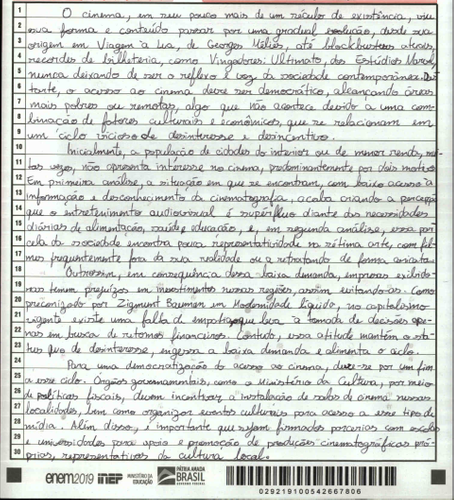 O cinema, em seu pouco mais de um século de existência, viu
sua forma e conteúdo passar por uma gradual evolução, desde sua
origem em Viagem à Lua, de Georges Méliès, até blockbusters atuais,
recordes de bilheteria, como Vingadores: Ultimato, dos Estúdios Marvel,
nunca deixando de ser o reflexo e voz da sociedade contemporânea.
tanto, o acesso ao cinema deve ser democrático, alcançando áreas
mais pobres ou remotas, algo que não acontece devido a uma com-
binação de fatores culturais e econômicos, que se relacionam em
um ciclo vicioso de desinteresse e desincentivo.
Inicialmente, a população de cidades do interior ou de menor renda, mui-
tas vezes, não apresenta interesse no cinema, predominantemente por dois motivos.
Em primeira análise, a situação em que se encontram, com baixo acesso à
informação e desconhecimento da cinematografia, acaba criando a percepção
que o entretenimento audiovisual é supérfluo diante das necessidades
diárias de alimentação, saúde e educação, e, em segunda análise, essa par-
cela da sociedade encontra pouca representatividade na sétima arte, com fil-
mes frequentemente fora da sua realidade ou a retratando de forma
Outrossim, em consequência dessa baixa demanda, empresas exibido-
ras temem prejuízos em investimentos nessas regiões, assim evitando-as. Como
preconizado por Zigmunt Bauman em Modernidade Líquida, no capitalismo
vigente existe uma falta de empatia que leva à tomada de decisões ape-
nas em busca de retornos financeiros. Contudo, essa atitude mantém o sta-
tus quo de desinteresse, engessa a baixa demanda e alimenta o ciclo.
Para uma democratização do acesso ao cinema, deve-se por um fim
a esse ciclo. Órgãos governamentais, como o Ministério da Cultura, por meio
de políticas fiscais, devem incentivar a instalação de salas de cinema nessas
localidades, bem como organizar eventos culturais para acesso a esse tipo de
mídia. Além disso, é importante que sejam firmadas parcerias com escolas
e universidades para apoio e promoção de produções cinematográficas pró-
prias, representativas da cultura local.
1
2
3
4
5
6
7
8
9
10
11
12
13
14
15
16
17
18
19
20
21
22
23
24
25
26
27
28
29
30
enem2019 INEP MINISTÉRIO DA EDUCAÇÃO PÁTRIA AMADA BRASIL GOVERNO FEDERAL
029219100542667806